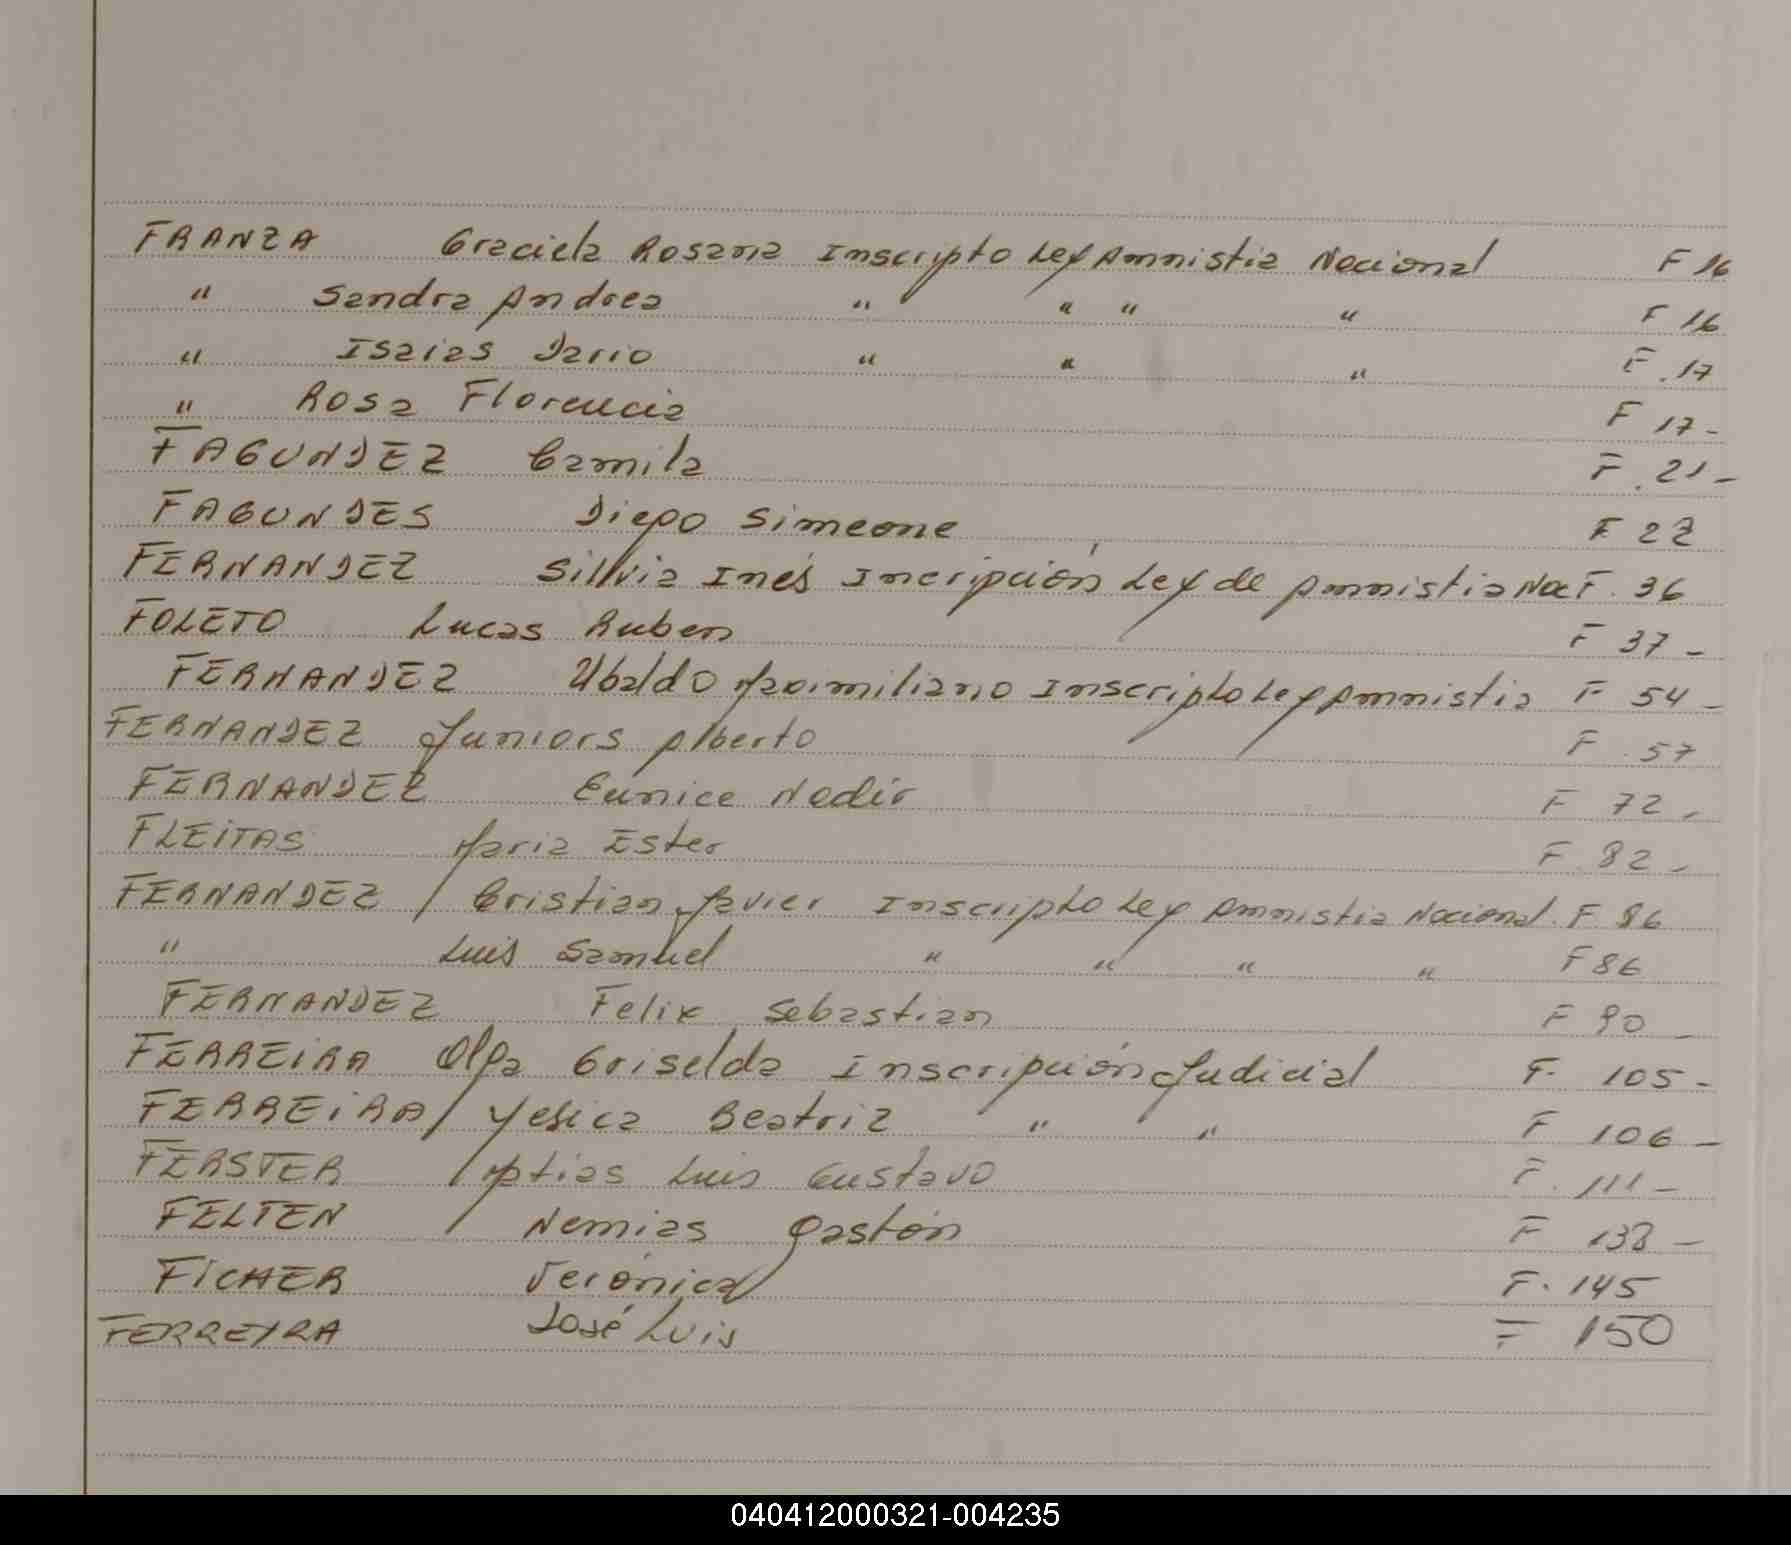 FRANZA Graciela Rosana Inscripto Ley Amnistia Nacional F 16
" Sandra Andrea " " " " F 16
" Isaias Dario " " " F. 17
" Rosa Florencia F 17-
FAGUNDEZ Camila F. 21-
FAGUNDES Diego Simeone F 22
FERNANDEZ Sillvia Inés Incripción Ley de Amnistia Nac F. 36
FOLETO Lucas Ruben F 37-
FERNANDEZ Ubaldo Maximiliano Inscripto Ley Amnistia F 54-
FERNANDEZ Juniors Alberto F. 57
FERNANDEZ Eunice Nadir F 72-
FLEITAS Maria Ester F. 82-
FERNANDEZ / Cristian Javier Inscripto Ley Amnistia Nacional. F 86
" Luis Samuel " " " " F 86
FERNANDEZ Felix Sebastian F 90-
FERREIRA Olga Griselda Inscripción Judicial F. 105-
FERREIRA / Yesica Beatriz " " F 106-
FERSTER Matias Luis Gustavo F. 111-
FELTEN / Nemias Gastón F 138-
FICHER Verónica F. 145
FERREYRA José Luis F 150
040412000321-004235